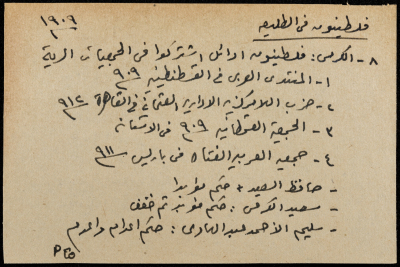 ١٩٠٩
فلسطينيون في الطليعه
٨- الكرمل: فلسطينيون اوائل اشتركوا في الجمعيات السرية
١- المنتدى العربي في القسطنطينية ٩٠٩
٢- حزب اللامركزية الادارية العثماني في القاهرة ٩١٢
٣- الجمعية القحطانية ٩٠٩ في الاستانة
٤- جمعية العربية الفتاة في باريس ٩١١
- حافظ السعيد + حكم مؤبدا
- سعيد الكرمي: حكم مؤبد ثم خفف
- سليم الأحمد عبد الهادي: حكم اعدام واعدم